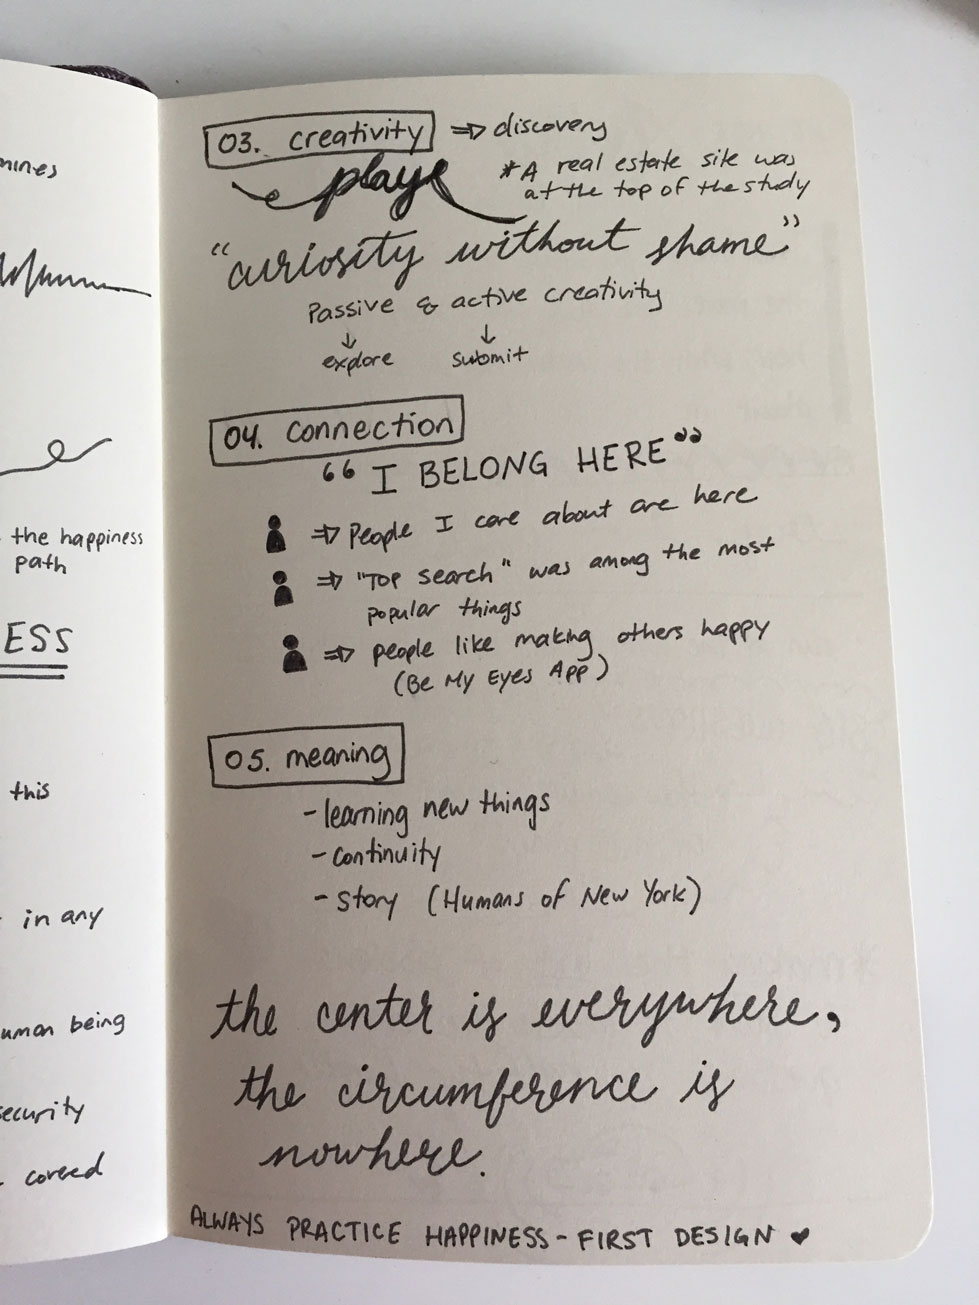 mines
the happiness
path
ESS
this
in any
uman being
security
covered
03. creativity => discovery
play
*A real estate site was
at the top of the study
"curiosity without shame"
Passive & active creativity
explore submit
04. connection
"I BELONG HERE"
=> People I care about are here
=> "Top search" was among the most
popular things
=> people like making others happy
(Be My Eyes App)
05. meaning
- learning new things
- continuity
- story (Humans of New York)
the center is everywhere,
the circumference is
nowhere.
ALWAYS PRACTICE HAPPINESS - FIRST DESIGN ♥